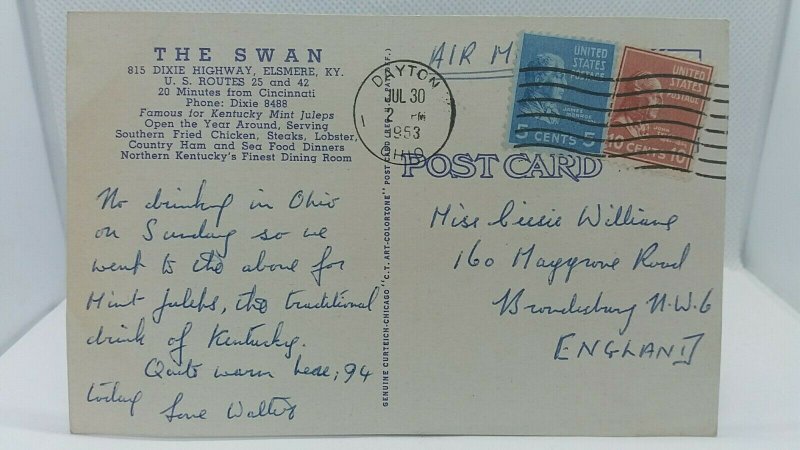 THE SWAN
815 DIXIE HIGHWAY, ELSMERE, KY.
U. S. ROUTES 25 and 42
20 Minutes from Cincinnati
Phone: Dixie 8488
Famous for Kentucky Mint Juleps
Open the Year Around, Serving
Southern Fried Chicken, Steaks, Lobster,
Country Ham and Sea Food Dinners
Northern Kentucky's Finest Dining Room
No drinking in Ohio
on Sunday so we
went to the above for
Mint Juleps, the traditional
drink of Kentucky.
Quite warm here; 94
today Love Walter
GENUINE CURTEICH-CHICAGO "C.T. ART-COLORTONE" POST CARD (REG. U.S. PAT. OFF.)
AIR
DAYTON
JUL 30
1953
OHIO
UNITED
STATES
POSTAGE
JAMES
MONROE
5 CENTS 5
UNITED
STATES
POSTAGE
JOHN
10 CENTS 10
POST CARD
Miss Cissie Williams
160 Maygrove Road
Brondesbury N.W.6
ENGLAND